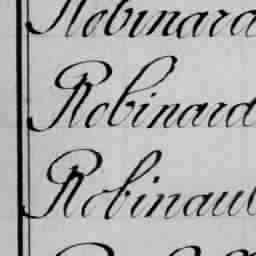 Robinard
Robinard
Robinaul